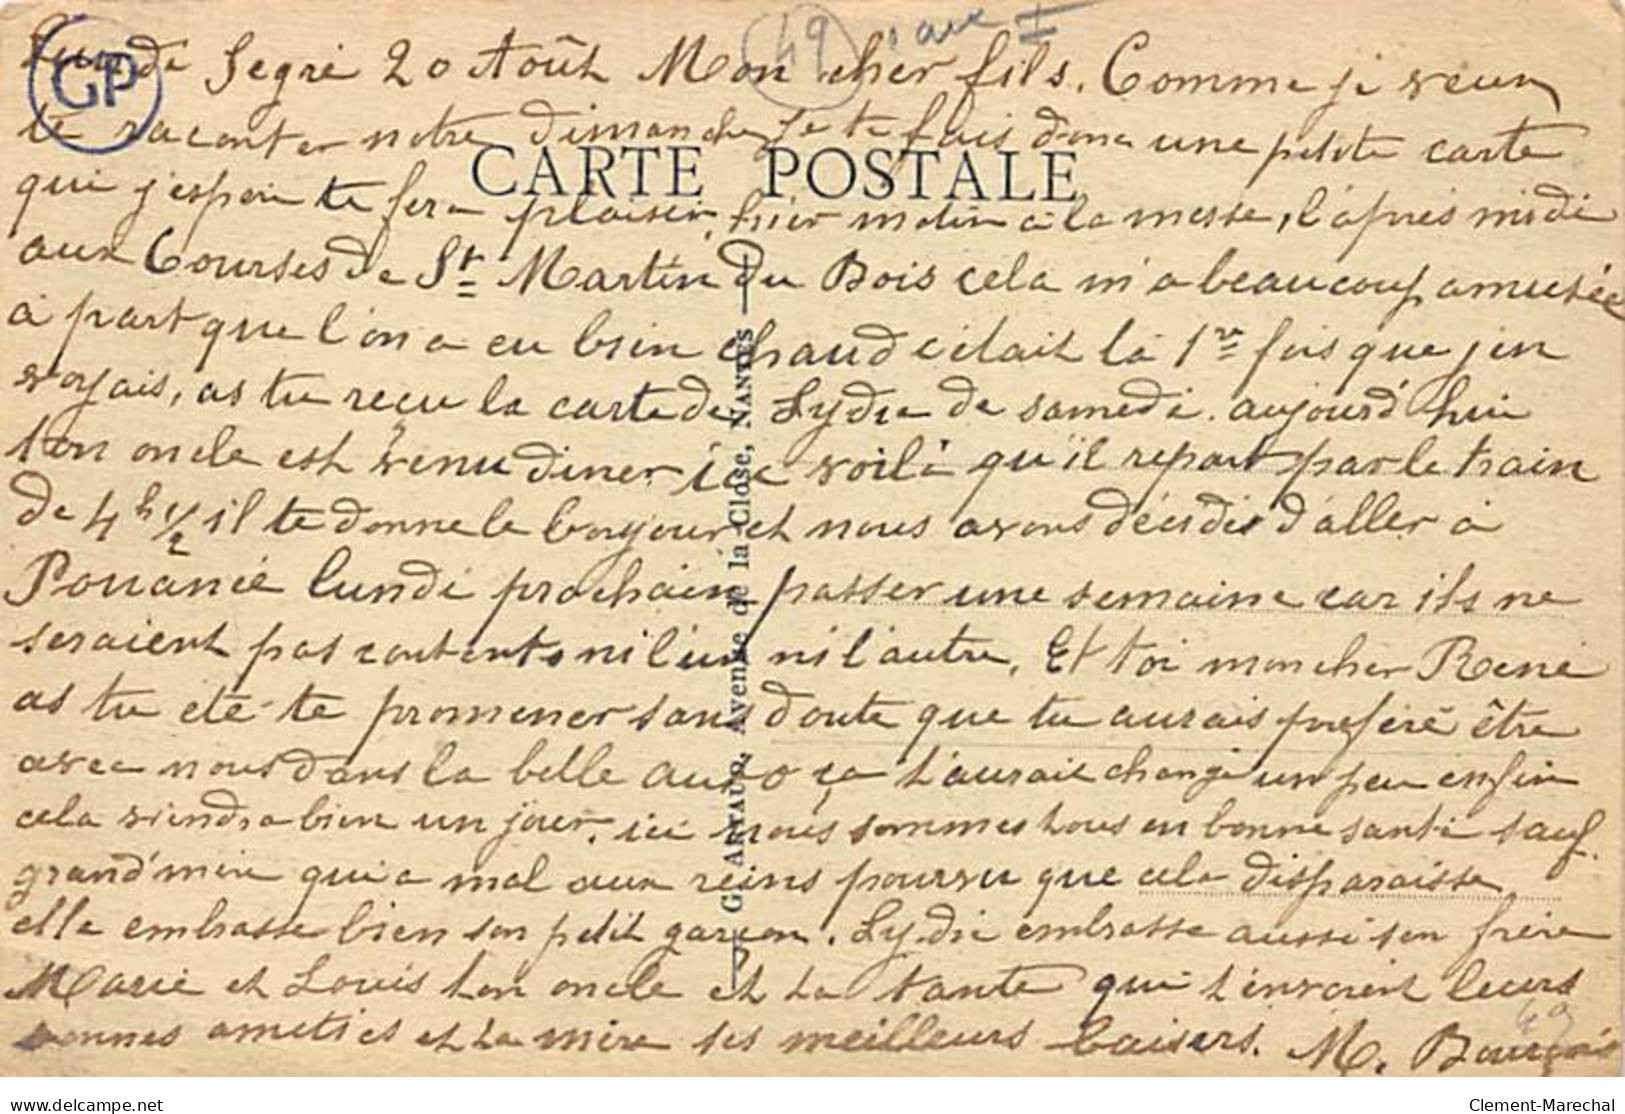 Lundi Segré 20 Août Mon cher fils. Comme je veux
te raconter notre dimanche je te fais donc une petite carte
CARTE POSTALE
qui j'espère te fera plaisir, hier matin à la messe, l'après midi
aux Courses de St Martin du Bois cela m'a beaucoup amusée
à part que l'on a eu bien chaud c'était la 1re fois que j'en
voyais, as tu reçu la carte de Lydie de samedi. aujourd'hui
ton oncle est venu diner ici voilà qu'il repart par le train
de 4h 1/2 il te donne le bonjour et nous avons décidés d'aller à
Pouancé lundi prochain passer une semaine car ils ne
seraient pas contents ni l'un ni l'autre. Et toi mon cher René
as tu été te promener sans doute que tu aurais préféré être
avec nous dans la belle auto ça t'aurait changé un peu enfin
cela viendra bien un jour. ici nous sommes tous en bonne santé sauf
grand'mère qui a mal aux reins pourvu que cela disparaisse
elle embrasse bien son petit garçon. Lydie embrasse aussi son frère
Marie et Louis ton oncle et ta tante qui t'envoient leurs
bonnes amitiés et ta mère ses meilleurs baisers. M.
G. ARTAUD, Avenue de la Close, NANTES
GP
49
49
delcampe.net
Clement-Marechal